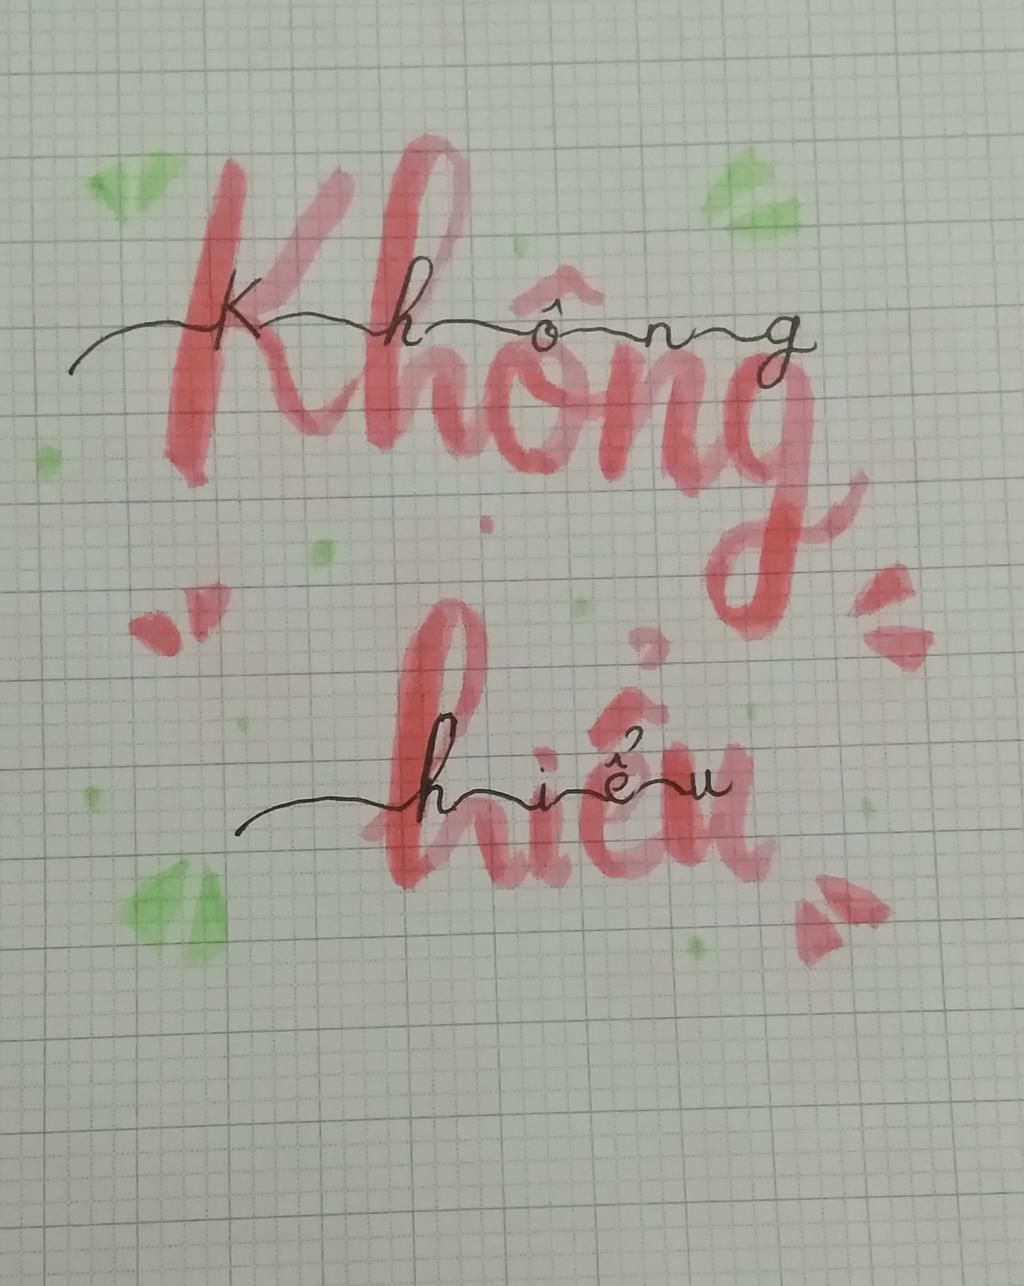 Không
Không
hiểu
hiểu